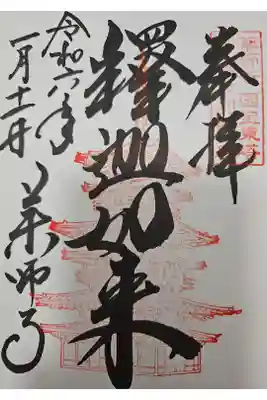 奉拝
釋迦如来
令和六年
一月十一日
薬師寺